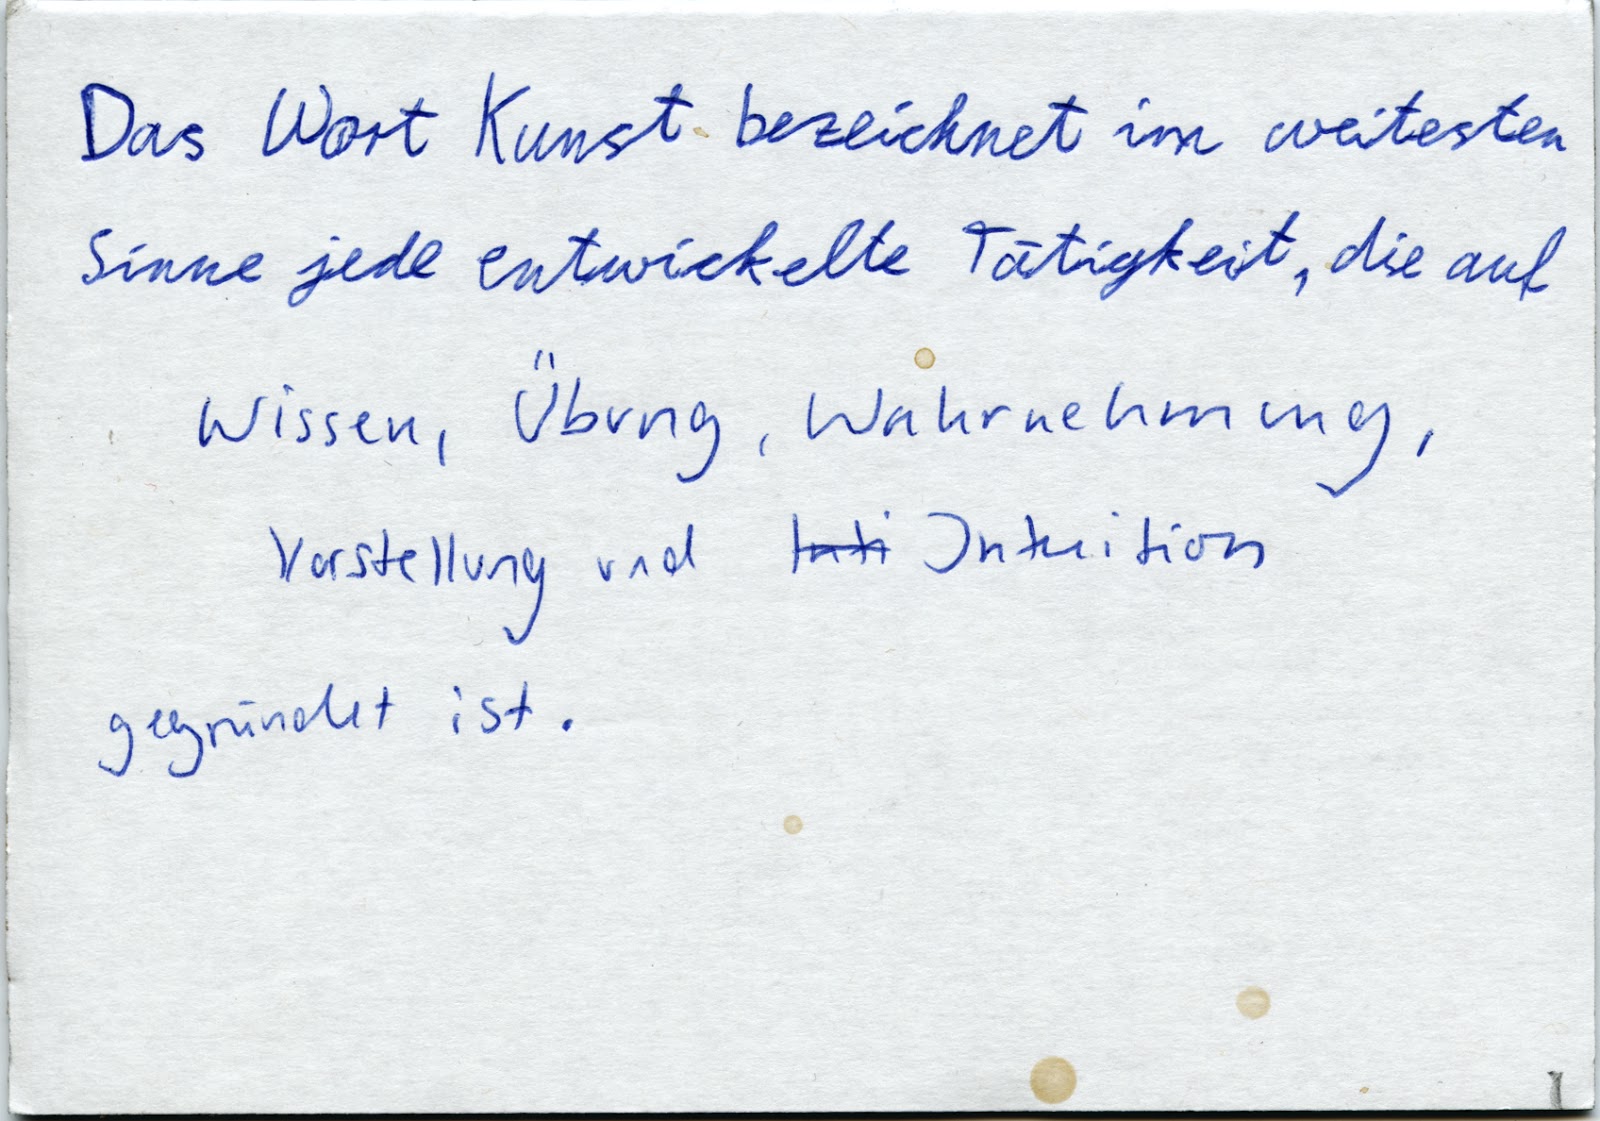 Das Wort Kunst bezeichnet im weitesten
Sinne jede entwickelte Tätigkeit, die auf
Wissen, Übung, Wahrnehmung,
Vorstellung und Inti Intuition
gegründet ist.
1